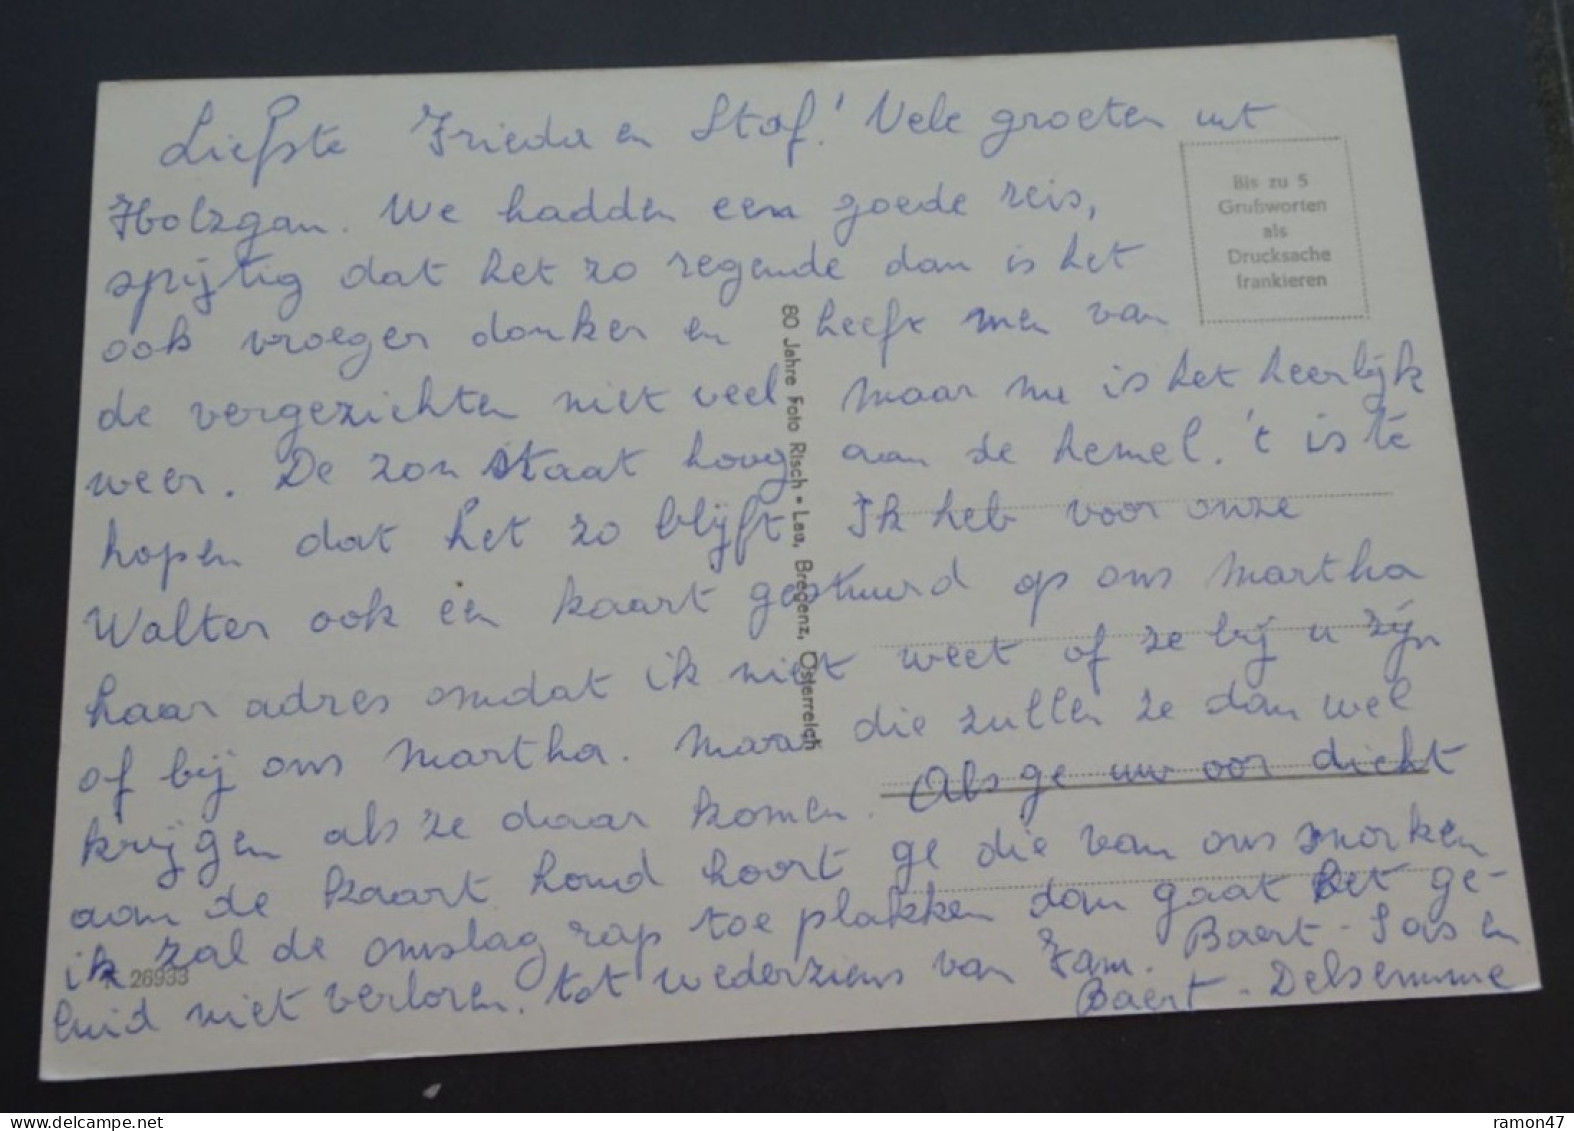 Liefste Frieda en Staf! Vele groeten uit
Holzgau. We hadden een goede reis,
spijtig dat het zo regende dan is het
ook vroeger donker en heeft men van
de vergezichten niet veel maar nu is het heerlijk
weer. De zon staat hoog aan de hemel. 't is te
hopen dat het zo blijft Ik heb voor onze
Walter ook een kaart gestuurd op ons Martha
haar adres omdat ik niet weet of ze bij u zijn
of bij ons Martha. Maar die zullen ze dan wel
krijgen als ze daar komen. Als ge uw oor dicht
aan de kaart houd hoort ge die van ons snorken
ik zal de omslag rap toe plakken dan gaat het ge-
luid niet verloren. tot wederziens van Fam. Baert-Sas en
Baert-Delsemme
Bis zu 5
Grußworten
als
Drucksache
frankieren
60 Jahre Foto Risch-Lau, Bregenz, Österreich
26933
www.delcampe.net
ramon47